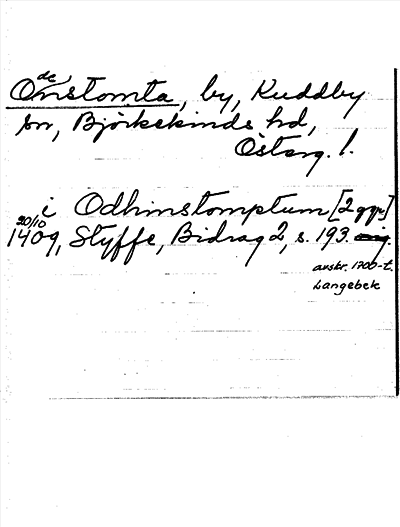 Odenstomta, by, Kuddby
sn, Björkekinds hd,
Österg. l.
i Odhinstomptum [2 ggr]
20/10 1409, Styffe, Bidrag 2, s. 193.
avskr. 1700-t.
Langebek